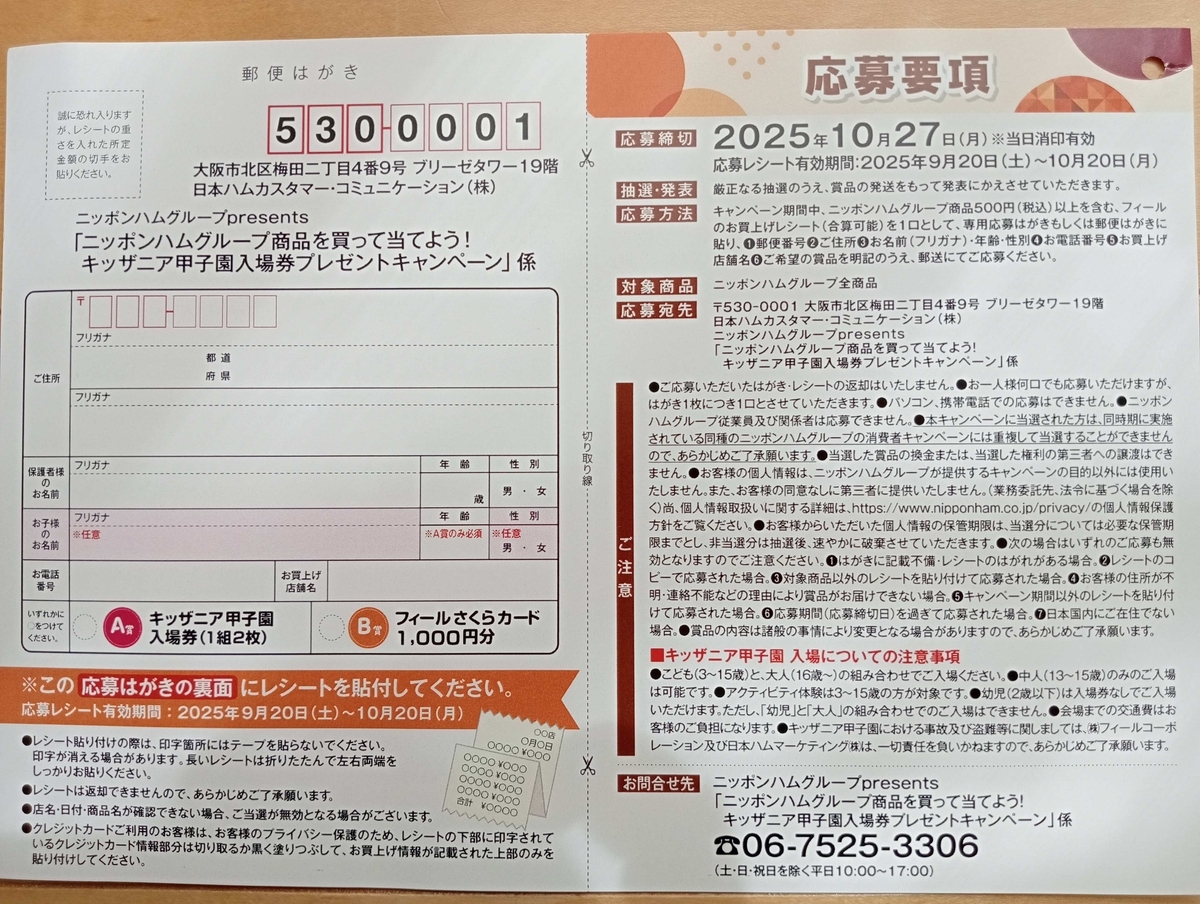 郵便はがき
誠に恐れ入りますが、レシートの重さを入れた所定金額の切手をお貼りください。
530-0001
大阪市北区梅田二丁目4番9号 ブリーゼタワー19階
日本ハムカスタマー・コミュニケーション(株)
ニッポンハムグループpresents
「ニッポンハムグループ商品を買って当てよう!
キッザニア甲子園入場券プレゼントキャンペーン」係
〒
フリガナ
ご住所
都 道
府 県
フリガナ
保護者様のお名前
フリガナ
年 齢
性 別
歳
男 ・ 女
お子様のお名前
フリガナ
※任意
年 齢
※A賞のみ必須
性 別
※任意
男 ・ 女
お電話番号
お買上げ店舗名
いずれかに○をつけてください。
A賞
キッザニア甲子園
入場券(1組2枚)
B賞
フィールさくらカード
1,000円分
※この 応募はがきの裏面 にレシートを貼付してください。
応募レシート有効期間:2025年9月20日(土)~10月20日(月)
●レシート貼り付けの際は、印字箇所にはテープを貼らないでください。
印字が消える場合があります。長いレシートは折りたたんで左右両端を
しっかりお貼りください。
●レシートは返却できませんので、あらかじめご了承願います。
●店名・日付・商品名が確認できない場合、ご当選が無効となる場合がございます。
●クレジットカードご利用のお客様は、お客様のプライバシー保護のため、レシートの下部に印字されて
いるクレジットカード情報部分は切り取るか黒く塗りつぶして、お買上げ情報が記載された上部のみを
貼り付けしてください。
○○店
○月○日
○○○○ ¥○○○
○○○○ ¥○○○
○○○○ ¥○○○
○○○○ ¥○○○
○○○○ ¥○○○
合計 ¥○○○○
切り取り線
応募要項
応募締切
2025年10月27日(月)※当日消印有効
応募レシート有効期間:2025年9月20日(土)~10月20日(月)
抽選・発表
厳正なる抽選のうえ、賞品の発送をもって発表にかえさせていただきます。
応募方法
キャンペーン期間中、ニッポンハムグループ商品500円(税込)以上を含む、フィール
のお買上げレシート(合算可能)を1口として、専用応募はがきもしくは郵便はがきに
貼り、❶郵便番号❷ご住所❸お名前(フリガナ)・年齢・性別❹お電話番号❺お買上げ
店舗名❻ご希望の賞品を明記のうえ、郵送にてご応募ください。
対象商品
ニッポンハムグループ全商品
応募宛先
〒530-0001 大阪市北区梅田二丁目4番9号 ブリーゼタワー19階
日本ハムカスタマー・コミュニケーション(株)
ニッポンハムグループpresents
「ニッポンハムグループ商品を買って当てよう!
キッザニア甲子園入場券プレゼントキャンペーン」係
ご注意
●ご応募いただいたはがき・レシートの返却はいたしません。●お一人様何口でも応募いただけますが、
はがき1枚につき1口とさせていただきます。●パソコン、携帯電話での応募はできません。●ニッポン
ハムグループ従業員及び関係者は応募できません。●本キャンペーンに当選された方は、同時期に実施
されている同種のニッポンハムグループの消費者キャンペーンには重複して当選することができません
ので、あらかじめご了承願います。●当選した賞品の換金または、当選した権利の第三者への譲渡はでき
ません。●お客様の個人情報は、ニッポンハムグループが提供するキャンペーンの目的以外には使用い
たしません。また、お客様の同意なしに第三者に提供いたしません。(業務委託先、法令に基づく場合を除
く)尚、個人情報取扱いに関する詳細は、https://www.nipponham.co.jp/privacy/の個人情報保護
方針をご覧ください。●お客様からいただいた個人情報の保管期限は、当選分については必要な保管期
限までとし、非当選分は抽選後、速やかに破棄させていただきます。●次の場合はいずれのご応募も無
効となりますのでご注意ください。❶はがきに記載不備・レシートのはがれがある場合。❷レシートのコ
ピーで応募された場合。❸対象商品以外のレシートを貼り付けて応募された場合。❹お客様の住所が不
明・連絡不能などの理由により賞品がお届けできない場合。❺キャンペーン期間以外のレシートを貼り付
けて応募された場合。❻応募期間(応募締切日)を過ぎて応募された場合。❼日本国内にご在住でない
場合。●賞品の内容は諸般の事情により変更となる場合がありますので、あらかじめご了承願います。
■キッザニア甲子園 入場についての注意事項
●こども(3~15歳)と、大人(16歳~)の組み合わせでご入場ください。●中人(13~15歳)のみのご入場
は可能です。●アクティビティ体験は3~15歳の方が対象です。●幼児(2歳以下)は入場券なしでご入場
いただけます。ただし、「幼児」と「大人」の組み合わせでのご入場はできません。●会場までの交通費はお
客様のご負担になります。●キッザニア甲子園における事故及び盗難等に関しましては、㈱フィールコーポ
レーション及び日本ハムマーケティング㈱は、一切責任を負いかねますので、あらかじめご了承願います。
お問合せ先
ニッポンハムグループpresents
「ニッポンハムグループ商品を買って当てよう!
キッザニア甲子園入場券プレゼントキャンペーン」係
☎06-7525-3306
(土・日・祝日を除く平日10:00~17:00)